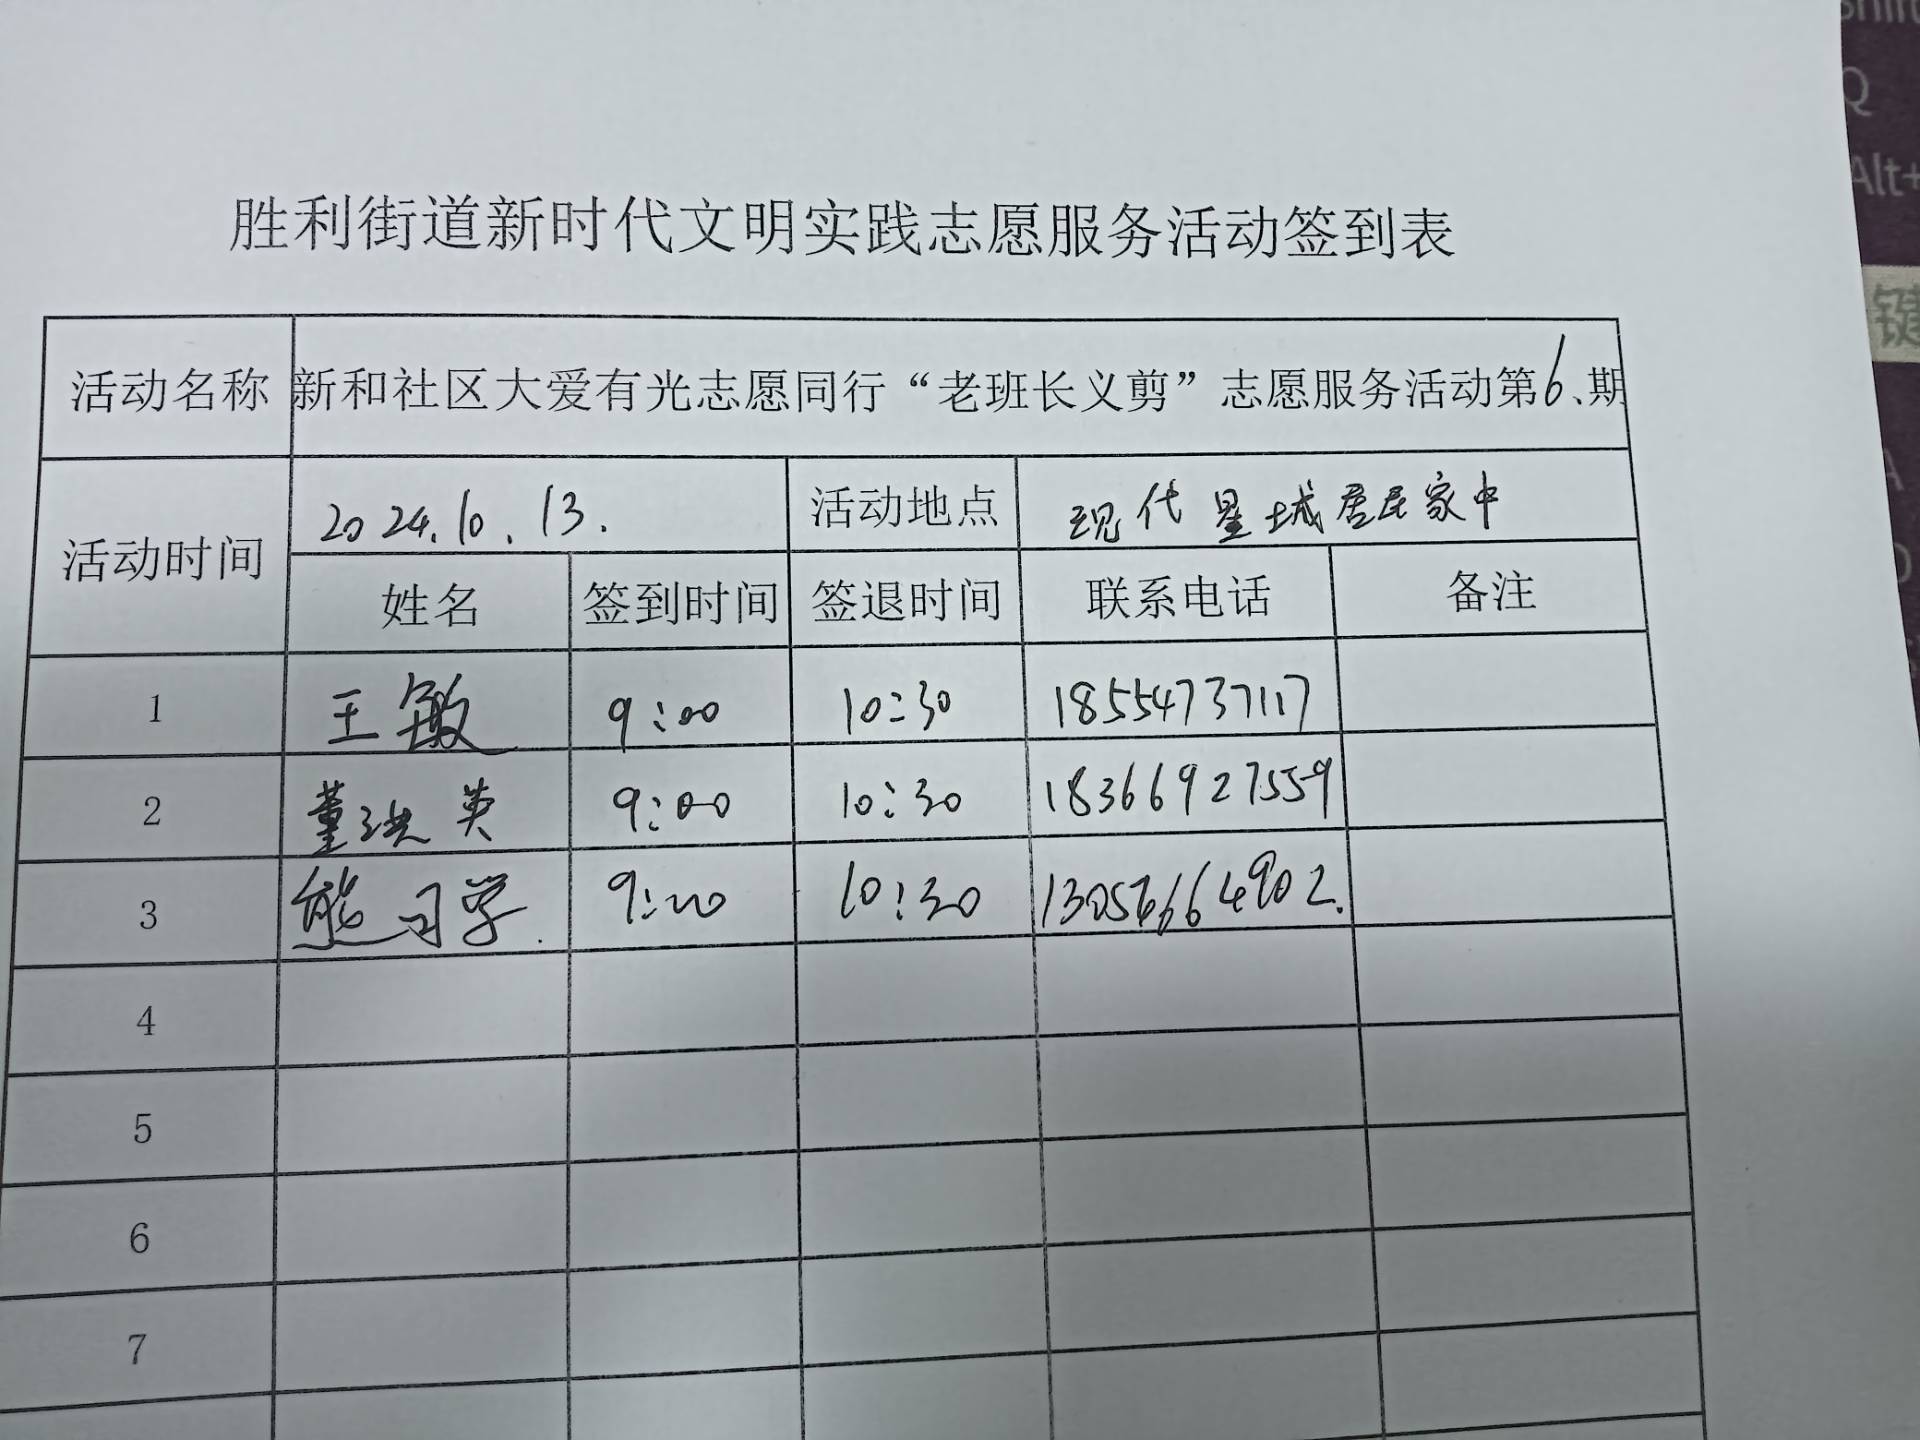 胜利街道新时代文明实践志愿服务活动签到表
活动名称 新和社区大爱有光志愿同行“老班长义剪”志愿服务活动第6、期
活动时间 2024.10.13. 活动地点 现代星城居民家中
姓名 签到时间 签退时间 联系电话 备注
1 王敏 9:00 10:30 18554737117
2 董洪英 9:00 10:30 18366927559
3 熊习学. 9:00 10:30
4
5
6
7
Shift
Q
Alt+
键
A